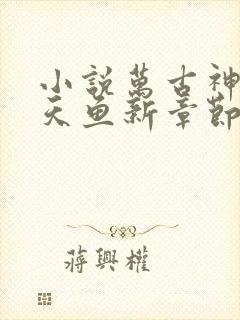 小說萬古神
天魚新章節
蔣興權